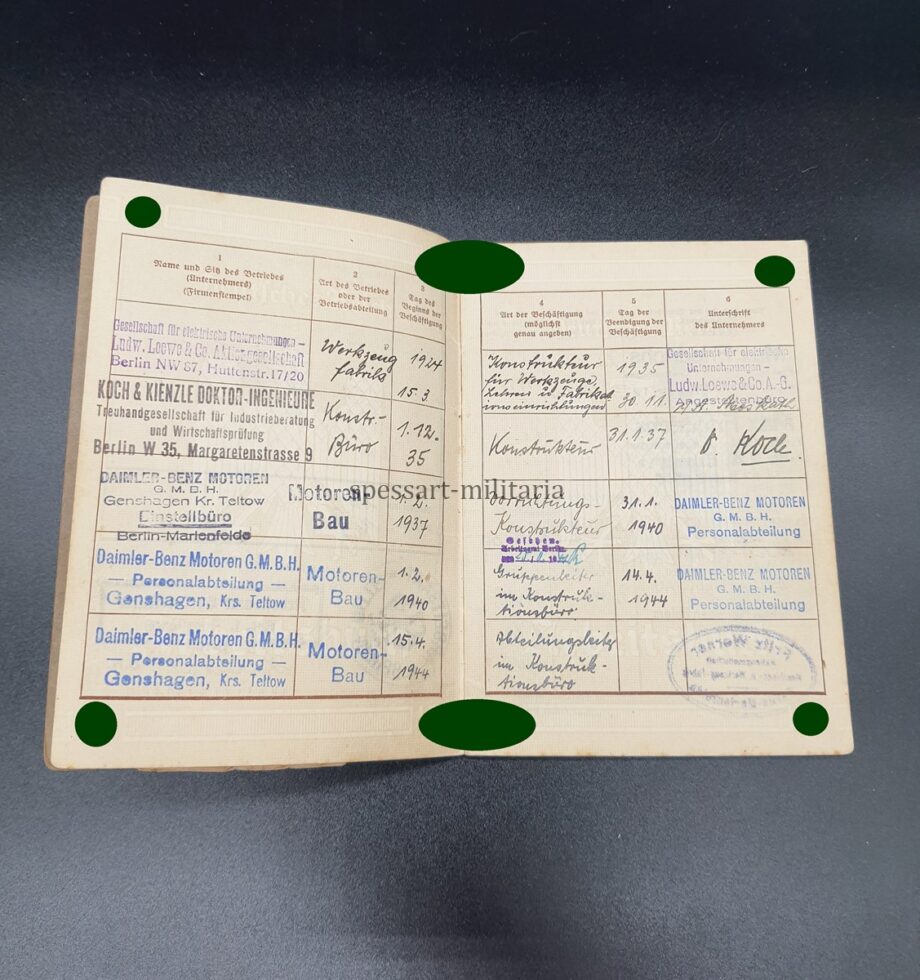 1
Name und Sitz des Betriebes
(Unternehmers)
(Firmenstempel)
2
Art des Betriebes
oder der
Betriebsabteilung
3
Tag des
Beginns der
Beschäftigung
Gesellschaft für elektrische Unternehmungen –
Ludw. Loewe & Co. Aktiengesellschaft
Berlin NW 87, Huttenstr. 17/20
Werkzeug
fabrik
1924
15.3.
KOCH & KIENZLE DOKTOR-INGENIEURE
Treuhandgesellschaft für Industrieberatung
und Wirtschaftsprüfung
Berlin W 35, Margaretenstrasse 9
Konstr.-
Büro
1.12.
35
DAIMLER-BENZ MOTOREN
G. M. B. H.
Genshagen Kr. Teltow
Einstellbüro
Berlin-Marienfelde
Motoren-
Bau
1.2.
1937
Daimler-Benz Motoren G.M.B.H.
— Personalabteilung —
Genshagen, Krs. Teltow
Motoren-
Bau
1.2.
1940
Daimler-Benz Motoren G.M.B.H.
— Personalabteilung —
Genshagen, Krs. Teltow
Motoren-
Bau
15.4.
1944
4
Art der Beschäftigung
(möglichst
genau angeben)
5
Tag der
Beendigung der
Beschäftigung
6
Unterschrift
des Unternehmers
Konstrukteur
für Werkzeuge,
Lehren u. Fabrik
1935
30.11.
Gesellschaft für elektrische
Unternehmungen –
Ludw. Loewe & Co. A.-G.
Angestelltenbüro
Konstrukteur
31.1.37
Koch.
spessart-militaria
Vorrichtungs-
Konstrukteur
31.1.
1940
DAIMLER-BENZ MOTOREN
G. M. B. H.
Personalabteilung
Gesehen.
Arbeitsamt Berlin.
Gruppenleiter
im Konstruk-
tionsbüro
14.4.
1944
DAIMLER-BENZ MOTOREN
G. M. B. H.
Personalabteilung
Abteilungsleiter
im Konstruk-
tionsbüro
Fritz Werner